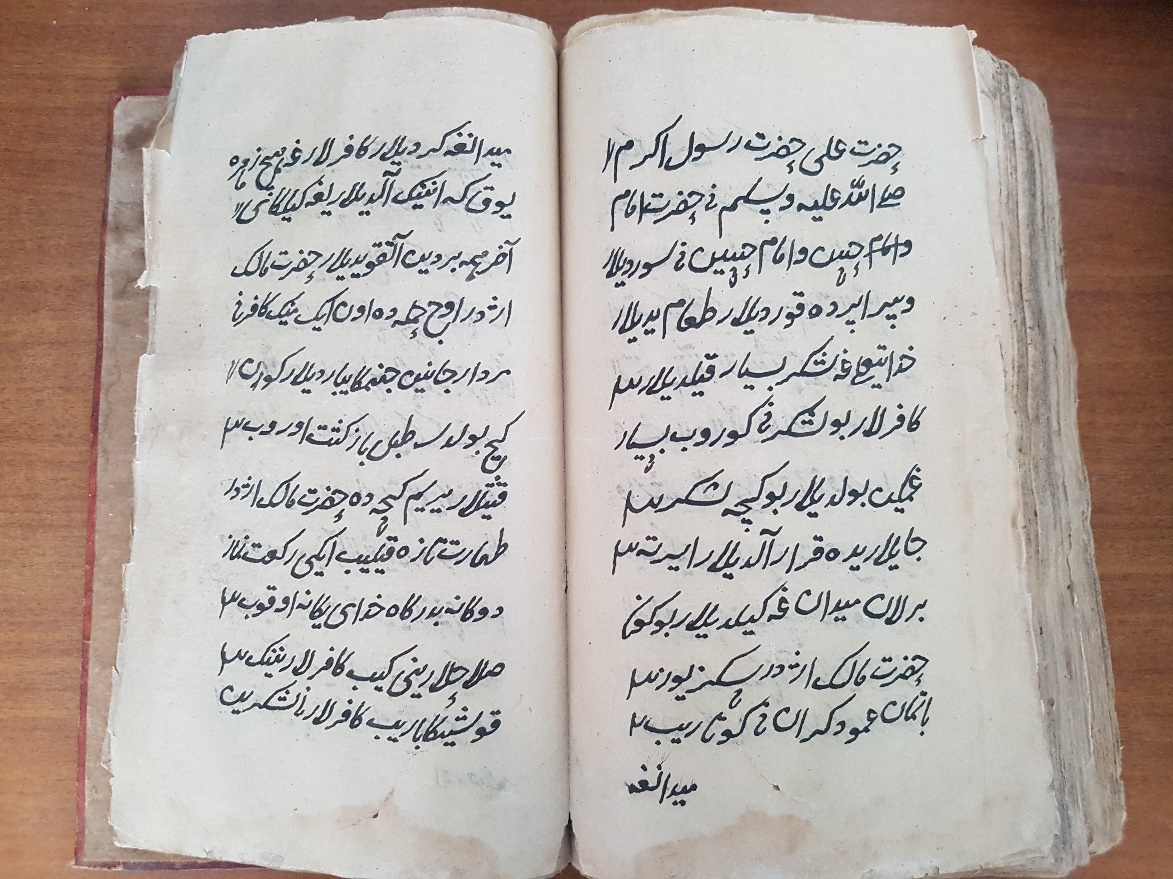 حضرت علی حضرت رسول اکرم
صلی الله علیه وسلم نی حضرت امام
وامام حسن وامام حسین نی سوردیلار
وسراپرده قوردیلار طعام یدیلار
خدایتعالی غه شکر بسیار قیلدیلار
کافرلار بو لشکرنی کوروب بسیار
غمکین بولدیلار بو کیچه لشکر
جایلاریده قرار آلدیلار ایرته
برلان میدان غه کیلدیلار بو کون
حضرت مالک اژدر سکز یوز
باتمان عمود کران نی کوتاریب
میدانغه
میدانغه کردیلار کافرلارغه هیچ زهره
یوق که انینک آلدیلاریغه کیلکای
آخر همه بردین آت قویدیلار حضرت مالک
اژدر اوچ حمله ده اون ایکی مینک کافرنی
مردار جانین جهنمکا یباردیلار کون
کیچ بولدی طبل بازکشت اوروب
قیتیلار یریم کیچه ده حضرت مالک اژدر
طهارت تازه قیلیب ایکی رکعت نماز
دوکانه بدرکاه خدای یکانه اوقوب
صلاحلارینی کییب کافرلارنینک
قوشیکا باریب کافرلارنی لشکریدین